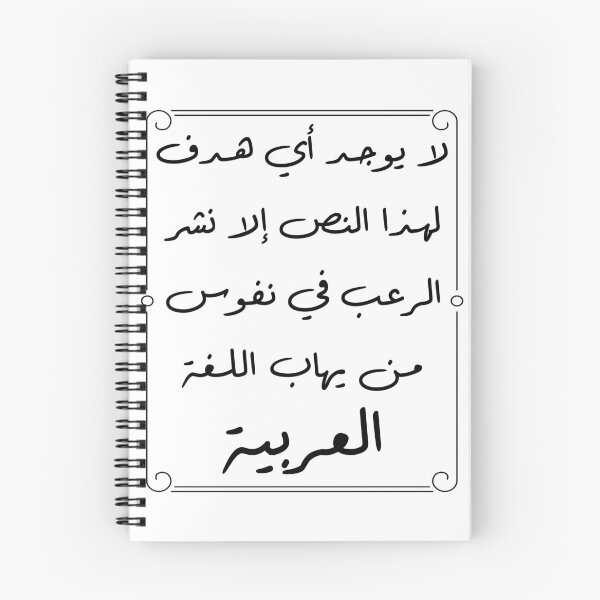 لا يوجد أي هدف
لهذا النص إلا نشر
الرعب في نفوس
من يهاب اللغة
العربية